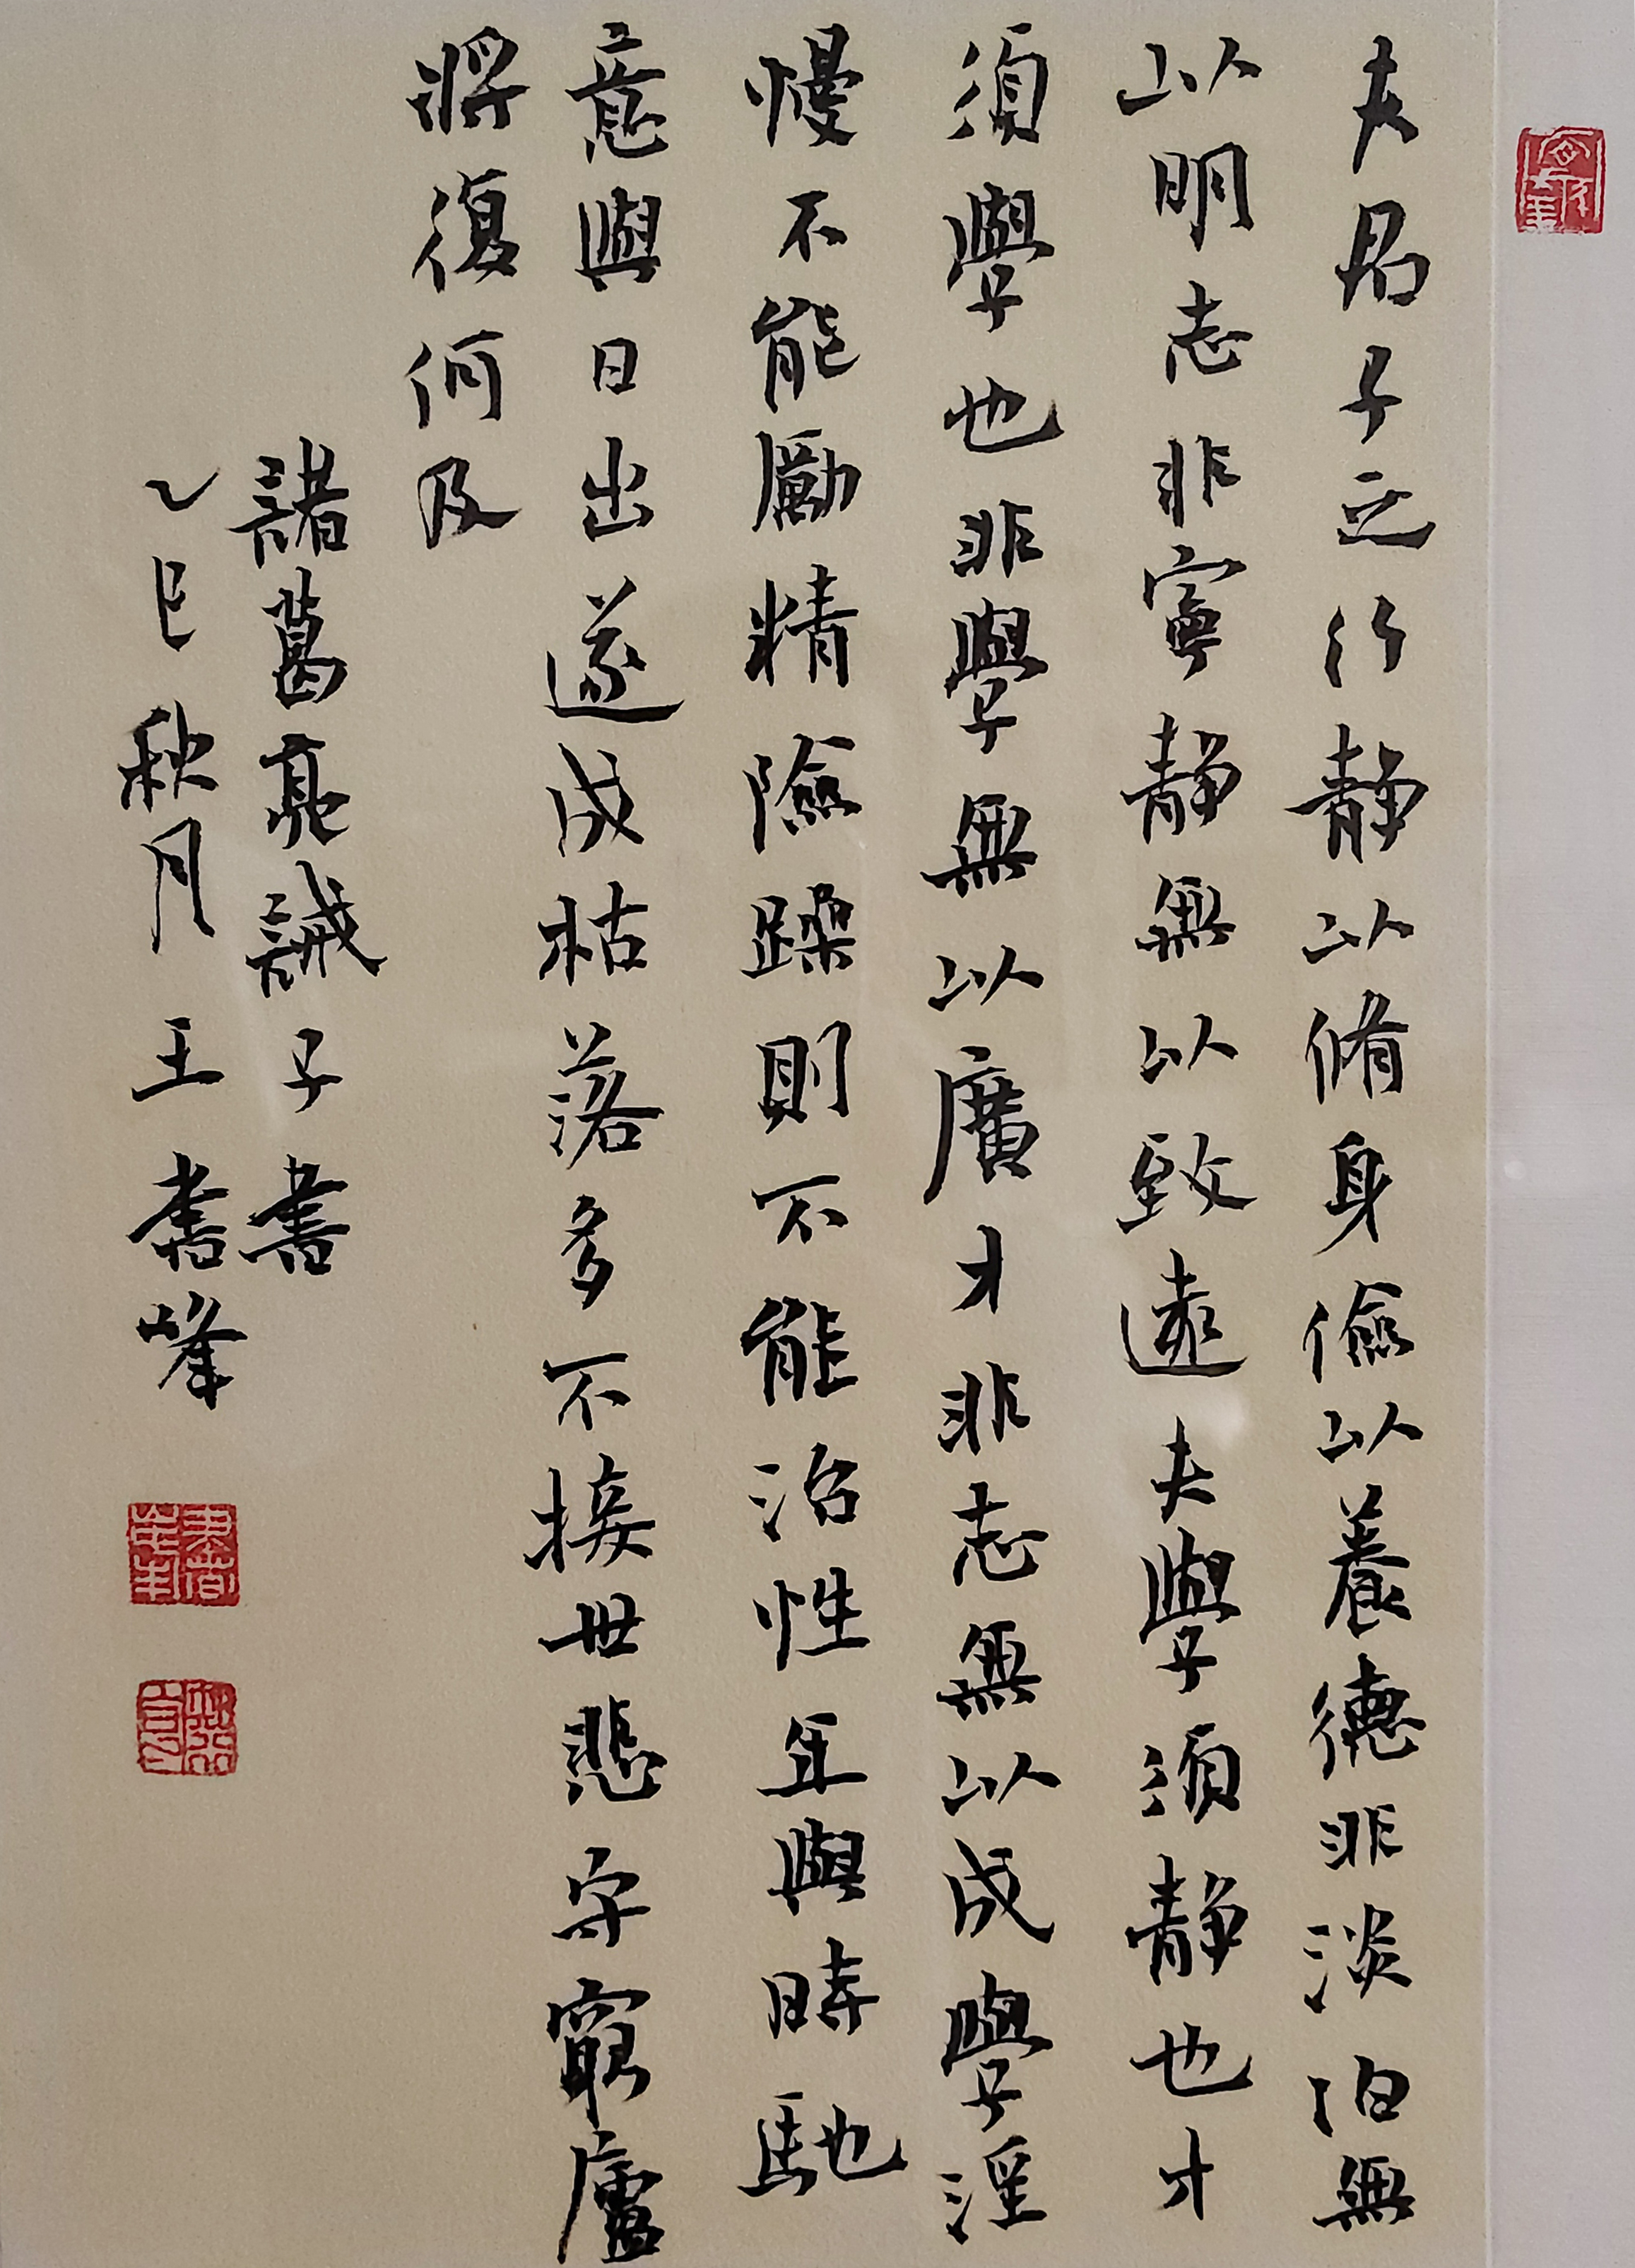 夫君子之行静以脩身儉以養德非淡泊無
以明志非寧静無以致遠夫學須静也才
須學也非學無以廣才非志無以成學淫
慢不能勵精險躁則不能治性年與時馳
意與日出遂成枯落多不接世悲守窮廬
將復何及
諸葛亮誡子書
乙巳秋月王書峰